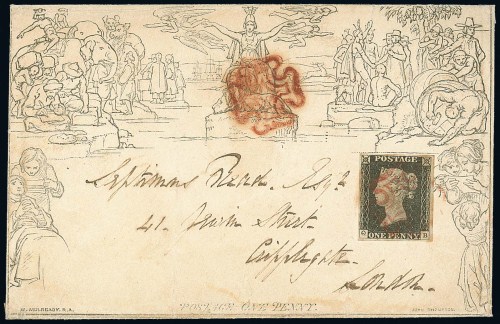 POSTAGE
ONE PENNY
Septimus Read. Esqre
41.
Street
Cripplegate
London.
POSTAGE ONE PENNY.
W. MULREADY, R.A.
JOHN THOMPSON